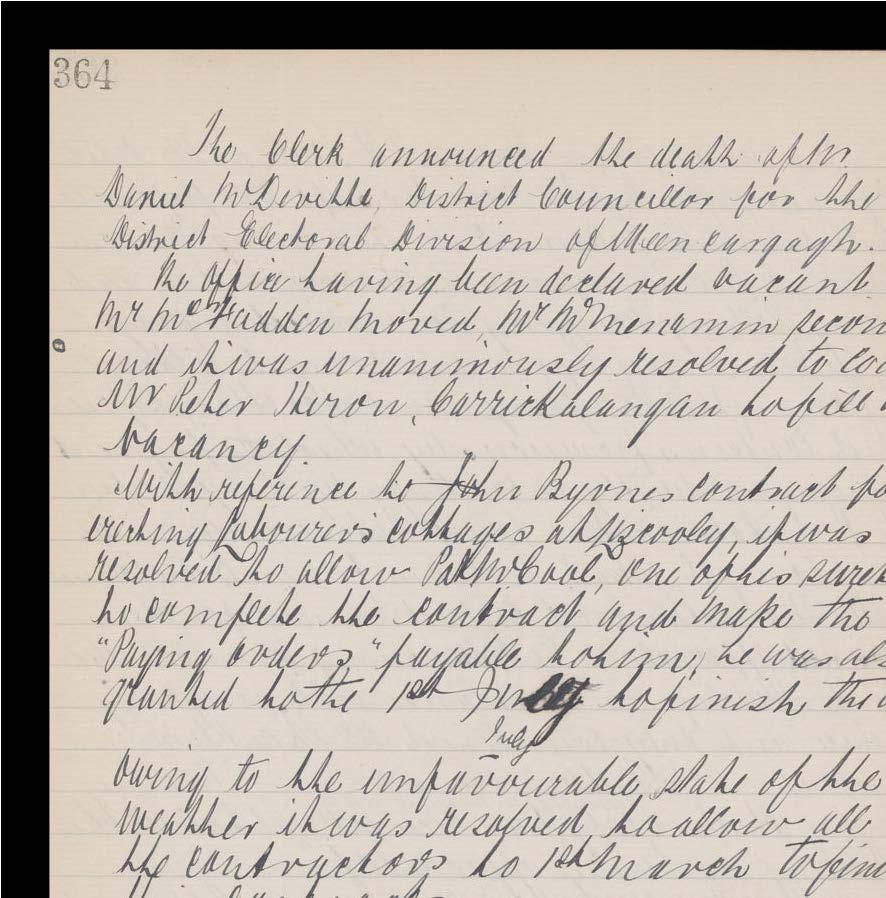 364
The Clerk announced the death of Mr
Daniel McDevitte, District Councillor for the
District Electoral Division of Meencargagh.
The office having been declared vacant
Mr McFadden moved, Mr McMenamin secon
and it was unanimously resolved to
Mr Peter Heron, Carrickalangan to fill
vacancy
With reference to John Byrnes contract
erecting Labourer's cottages at it was
resolved to allow Pat McCool, one of his
to complete the contract and make the
"Paying orders" payable to him, he was als
granted to the 1st to finish the
July
owing to the unfavourable state of the
weather it was resolved to allow all
the contractors to 1st March to